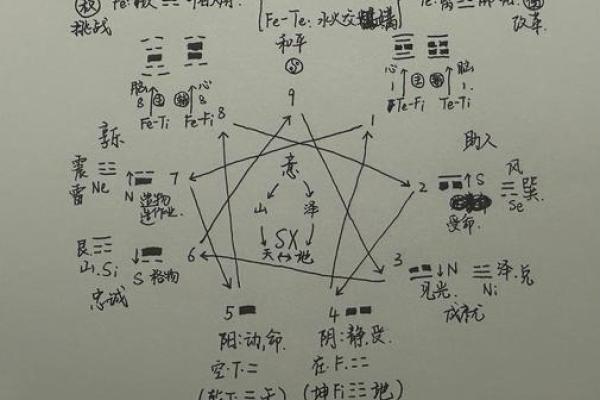 权 Fe:
Te:
挑战
[Fe-Te:水火交
改革
和平
心
脑
脑
8
心
8
1
1
主
Fe-Ti
Fe-Fi
8
9
1
Te-Fi
Te-Ti
享乐
助人
意
震 ☳
雷 Ne
↑ N
造物
造作业.
7
山
泽
2
↑ S
受命.
风
巽
Se
艮
山.Si
↓ S 格物
6
SX
天↔地
3
↓ N
见光.
泽.兑
Ni
忠诚
成就
5
4
阳:动,命.
阴:静,受.
空.T.
在.F.
(坤Fi ☷ 地)